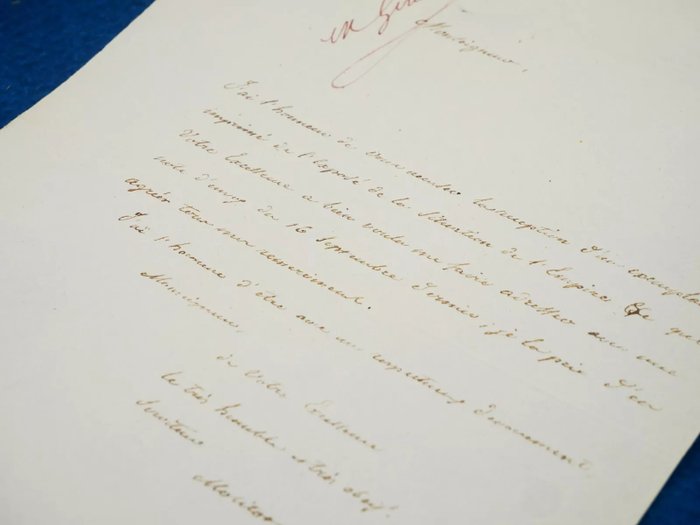 Monseigneur,
J'ai l'honneur de vous accuser la réception d'un exemplaire
imprimé de l'Exposé de la Situation de l'Empire, que
Votre Excellence a bien voulu me faire adresser avec une
note d'envoi du 16 Septembre dernier; je la prie d'en
agréer tous mes remerciemens.
J'ai l'honneur d'être avec un respectueux dévouement,
Monseigneur,
de Votre Excellence
le très humble et très obéist.
Serviteur
Molitor